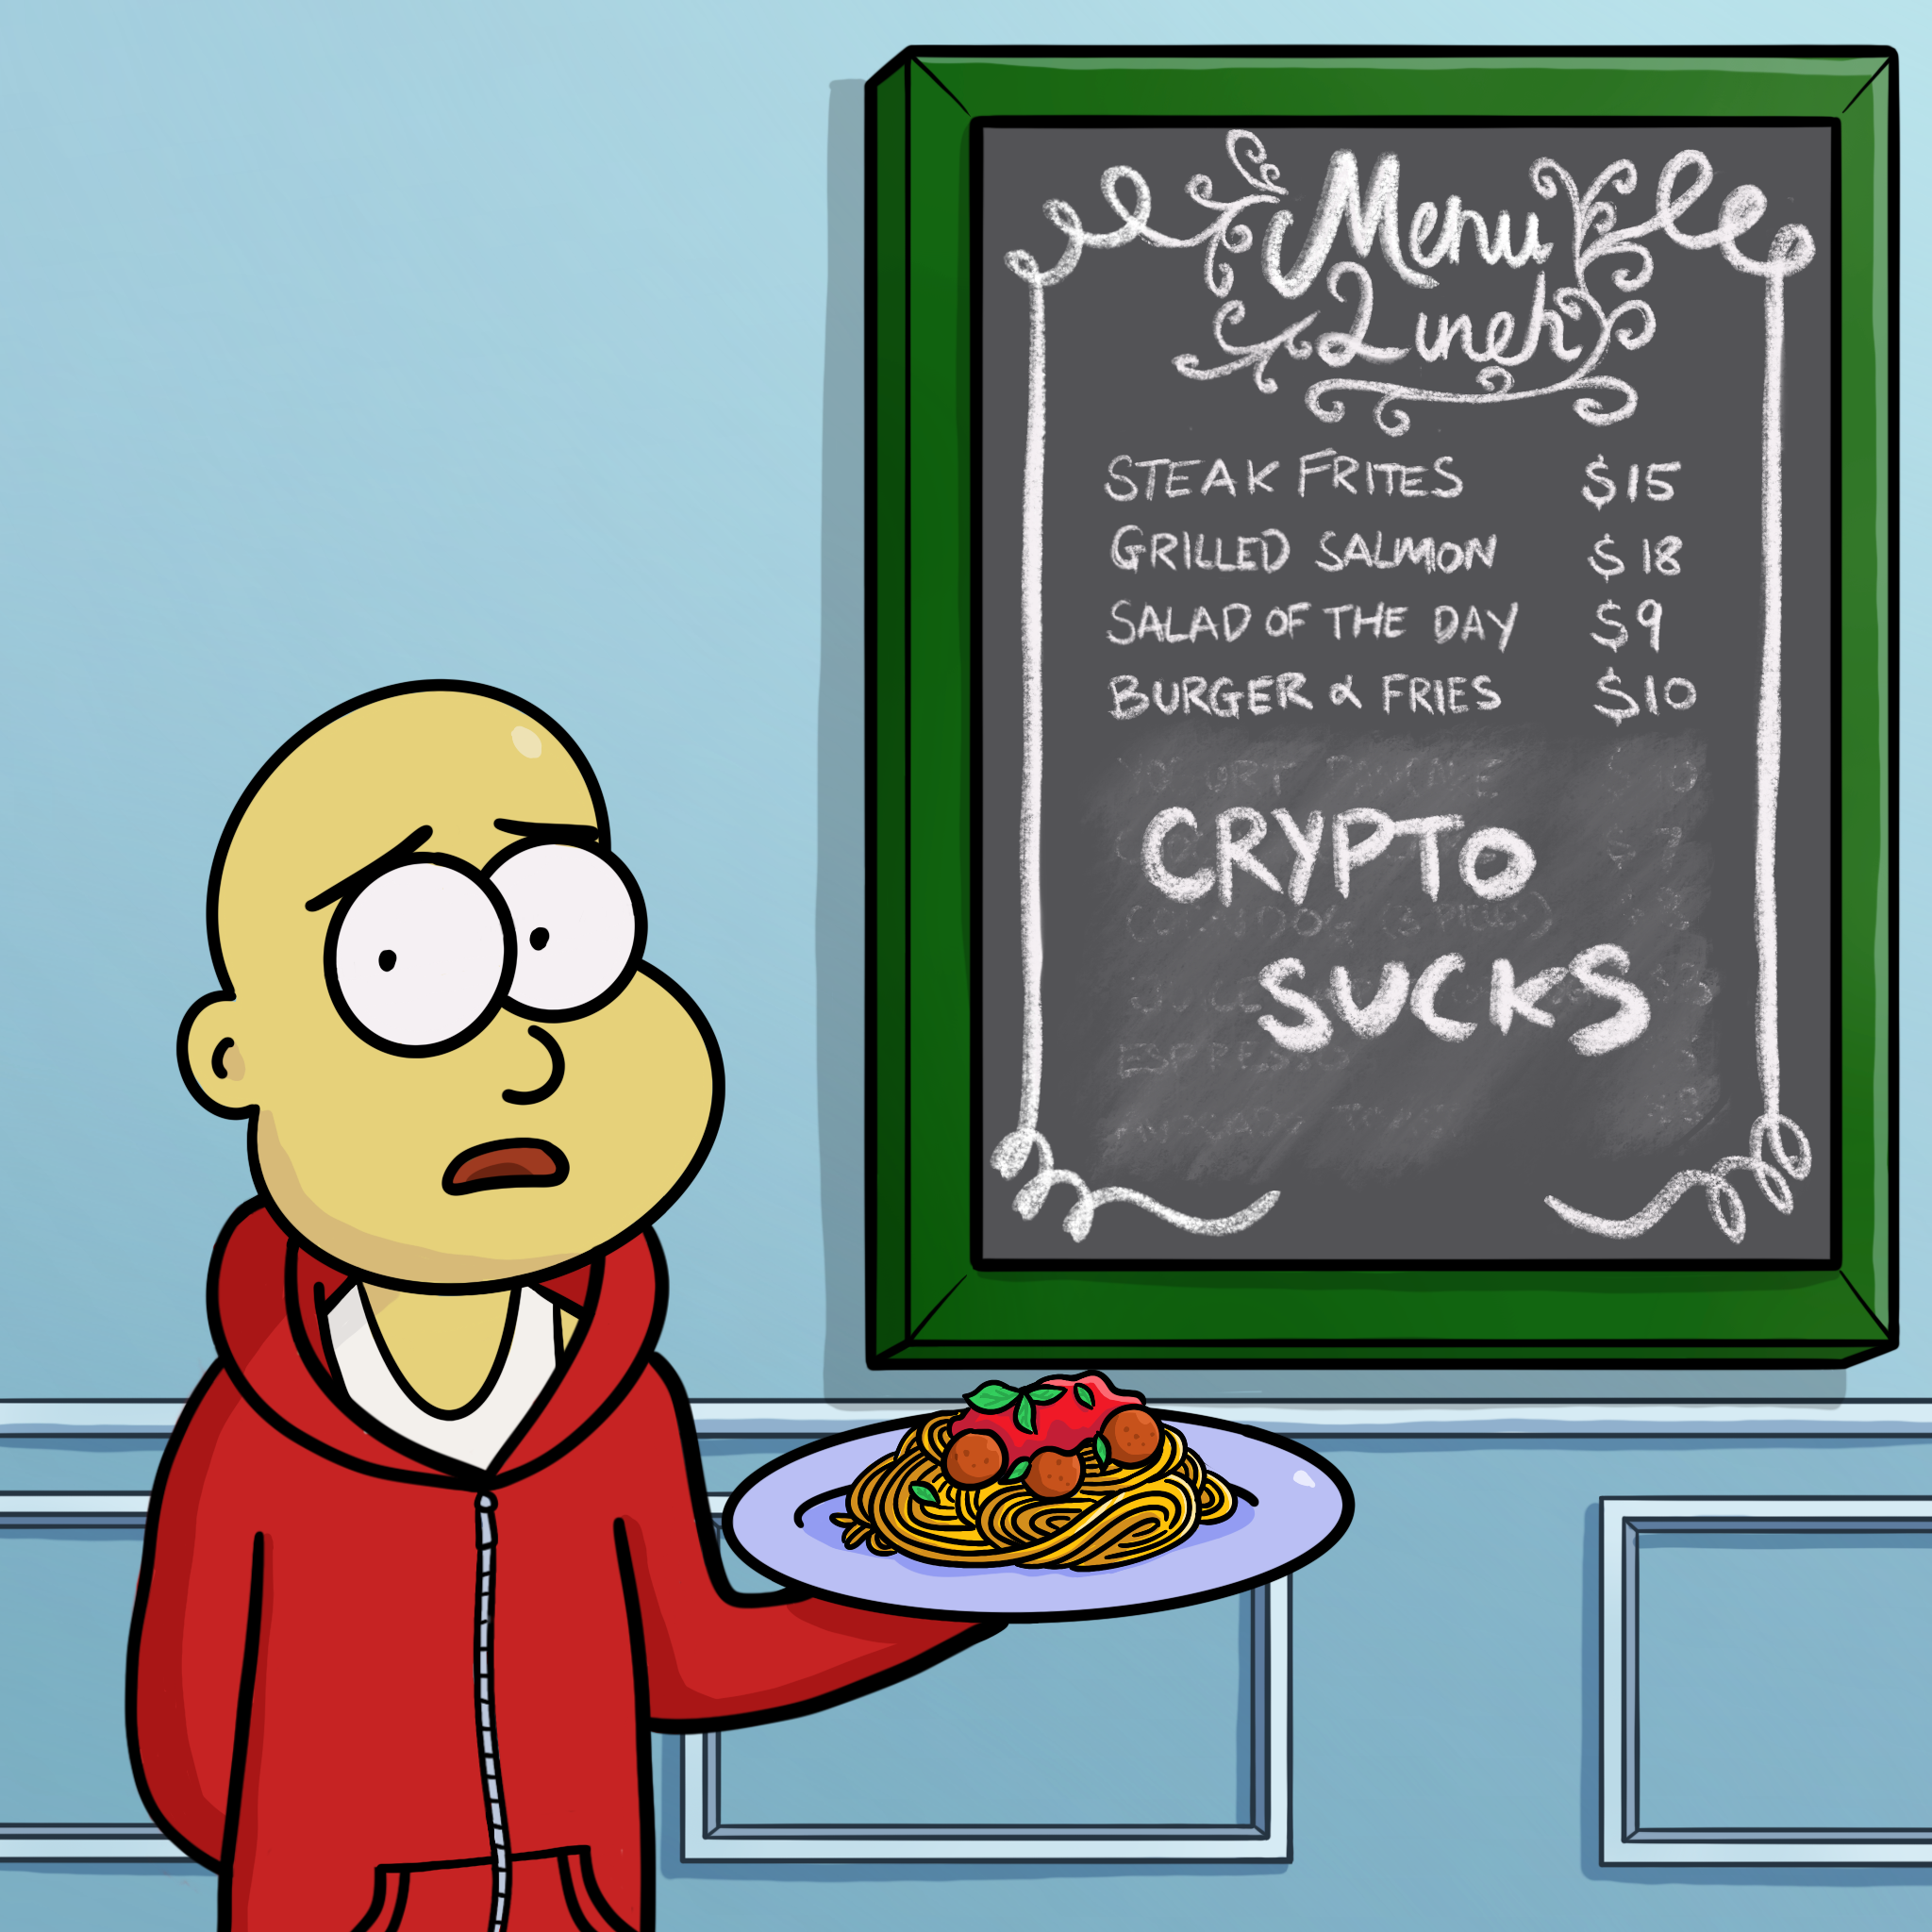 Menu
Lunch
STEAK FRITES $15
GRILLED SALMON $18
SALAD OF THE DAY $9
BURGER & FRIES $10
CRYPTO
SUCKS
ESPRESSO